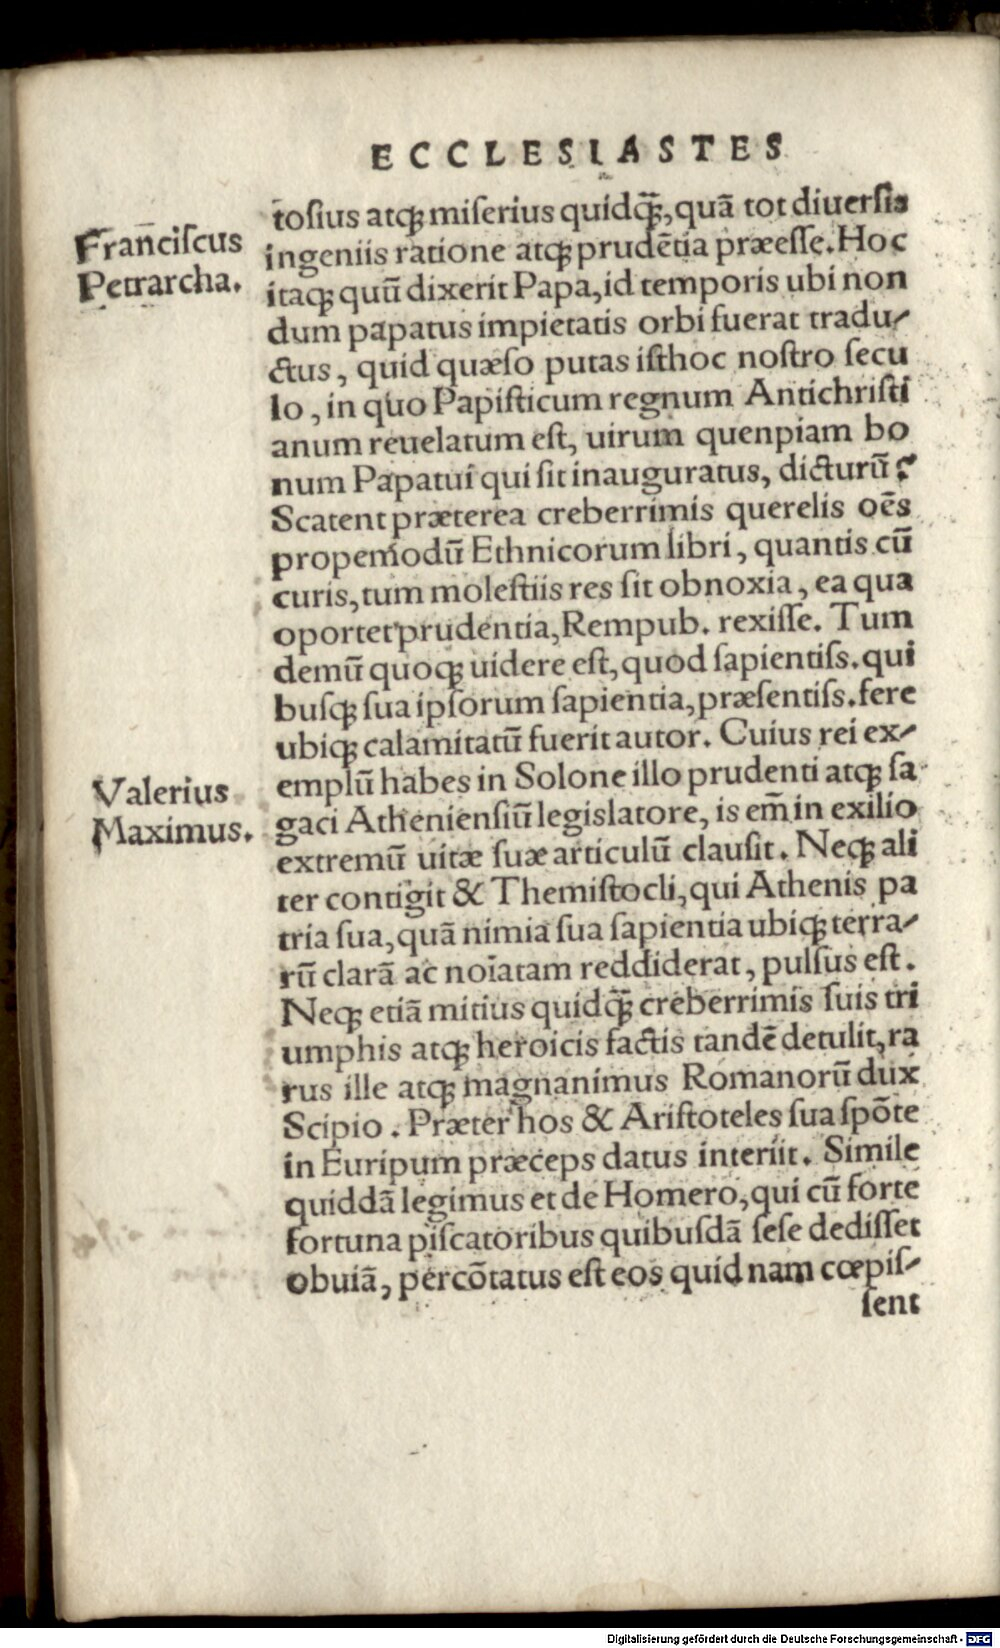 ECCLESIASTES
tosius atqꝫ miſerius quidqꝫ̃, quã tot diuerſis
Franciſcus
Petrarcha.
ingeniis ratione atqꝫ prudẽtia præeſſe. Hoc
itaqꝫ quũ dixerit Papa, id temporis ubi non
dum papatus impietatis orbi fuerat tradu⸗
ctus, quid quæſo putas iſthoc noſtro ſecu
lo, in quo Papiſticum regnum Antichriſti
anum reuelatum eſt, uirum quenpiam bo
num Papatui qui ſit inauguratus, dicturũ?
Scatent præterea creberrimis querelis oẽs
propemodũ Ethnicorum libri, quantis cũ
curis, tum moleſtiis res ſit obnoxia, ea qua
oportet prudentia, Rempub. rexiſſe. Tum
demũ quoqꝫ uidere eſt, quod ſapientiſs. qui
buſqꝫ ſua ipſorum ſapientia, præſentiſs. fere
ubiqꝫ calamitatũ fuerit autor. Cuius rei ex⸗
Valerius
Maximus.
emplũ habes in Solone illo prudenti atqꝫ ſa
gaci Athenienſiũ legislatore, is em̃ in exilio
extremũ uitæ ſuæ articulũ clauſit. Neqꝫ ali
ter contigit & Themiſtocli, qui Athenis pa
tria ſua, quã nimia ſua ſapientia ubiqꝫ terra⸗
rũ clarã ac noĩatam reddiderat, pulſus eſt.
Neqꝫ etiã mitius quidqꝫ̃ creberrimis ſuis tri
umphis atqꝫ heroicis factis tandẽ detulit, ra
rus ille atqꝫ magnanimus Romanorũ dux
Scipio. Præter hos & Ariſtoteles ſua ſpõte
in Euripum præceps datus interiit. Simile
quiddã legimus et de Homero, qui cũ forte
fortuna piſcatoribus quibuſdã ſeſe dediſſet
obuiã, percõtatus eſt eos quid nam cœpiſ⸗
ſent
Digitalisierung gefördert durch die Deutsche Forschungsgemeinschaft - DFG